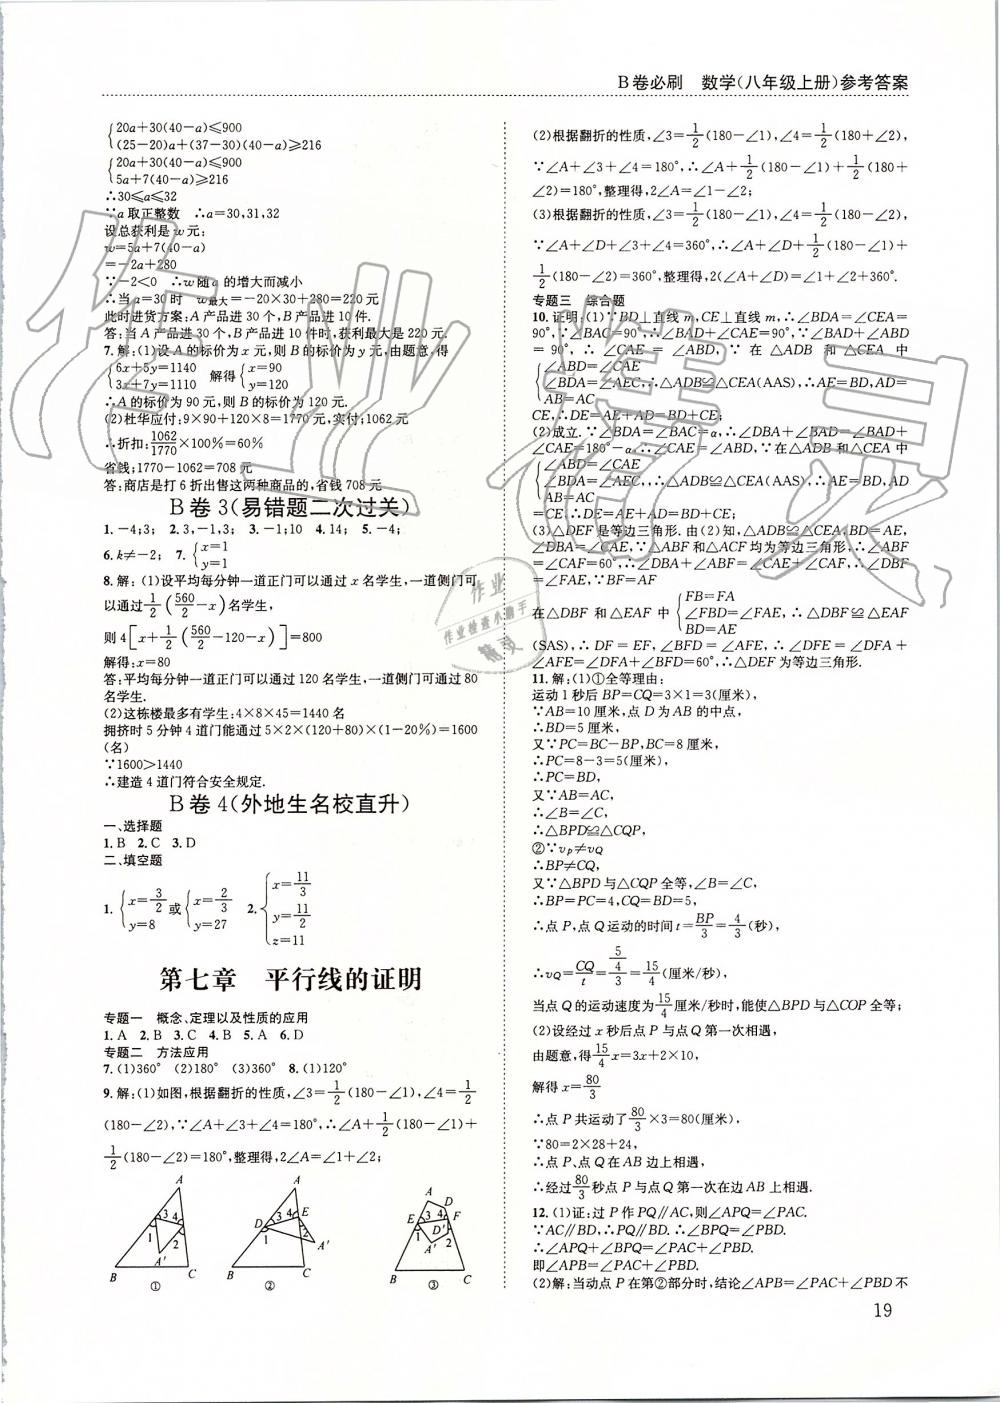 B卷必刷 数学(八年级上册)参考答案
20a+30(40-a)⩽900
(25-20)a+(37-30)(40-a)⩾216
20a+30(40-a)⩽900
5a+7(40-a)⩾216
∴30⩽a⩽32
∵a取正整数 ∴a=30,31,32
设总获利是w元:
w=5a+7(40-a)
=-2a+280
∵-2<0 ∴w随a的增大而减小
∴当a=30时 w最大=-20×30+280=220元
此时进货方案:A产品进30个,B产品进10件.
答:当A产品进30个,B产品进10件时,获利最大是220元.
7.解:(1)设A的标价为x元,则B的标价为y元,由题意,得
{6x+5y=1140 3x+7y=1110 解得{x=90 y=120
∴A的标价为90元,则B的标价为120元.
(2)杜华应付:9×90+120×8=1770元,实付:1062元
∴折扣:1062/1770×100%=60%
省钱:1770-1062=708元
答:商店是打6折出售这两种商品的,省钱708元
B卷3(易错题二次过关)
1.-4;3; 2.3,-1,3; 3.-1;10 4.14; 5.-4;
6.k≠-2; 7.{x=1 y=1
8.解:(1)设平均每分钟一道正门可以通过x名学生,一道侧门可
以通过1/2(560/2-x)名学生,
则4[x+1/2(560/2-120-x)]=800
解得:x=80
答:平均每分钟一道正门可以通过120名学生,一道侧门可通过80
名学生.
(2)这栋楼最多有学生:4×8×45=1440名
拥挤时5分钟4道门能通过5×2×(120+80)×(1-20%)=1600
(名)
∵1600>1440
∴建造4道门符合安全规定.
B卷4(外地生名校直升)
一、选择题
1.B 2.C 3.D
二、填空题
1.{x=3/2 y=8或{x=2/3 y=27 2.{x=11/3 y=11/2 z=11
第七章 平行线的证明
专题一 概念、定理以及性质的应用
1.A 2.B 3.C 4.B 5.A 6.D
专题二 方法应用
7.(1)360° (2)180° (3)360° 8.(1)120°
9.解:(1)如图,根据翻折的性质,∠3=1/2(180-∠1),∠4=1/2
(180-∠2),∵∠A+∠3+∠4=180°,∴∠A+1/2(180-∠1)+
1/2(180-∠2)=180°,整理得,2∠A=∠1+∠2;
A 3 4 1 2 A' B C ①
A D 3 4 E 1 2 A' B C ②
A D E 3 4 F D' 1 2 A' B C ③
(2)根据翻折的性质,∠3=1/2(180-∠1),∠4=1/2(180+∠2),
∵∠A+∠3+∠4=180°,∴∠A+1/2(180-∠1)+1/2(180+
∠2)=180°,整理得,2∠A=∠1-∠2;
(3)根据翻折的性质,∠3=1/2(180-∠1),∠4=1/2(180-∠2),
∵∠A+∠D+∠3+∠4=360°,∴∠A+∠D+1/2(180-∠1)+
1/2(180-∠2)=360°,整理得,2(∠A+∠D)=∠1+∠2+360°.
专题三 综合题
10.证明:(1)∵BD⊥直线m,CE⊥直线m,∴∠BDA=∠CEA=
90°,∵∠BAC=90°,∴∠BAD+∠CAE=90°,∵∠BAD+∠ABD
=90°,∴∠CAE=∠ABD,∵在△ADB和△CEA中
{∠ABD=∠CAE
∠BDA=∠AEC,∴△ADB≌△CEA(AAS),∴AE=BD,AD=
AB=AC
CE,∴DE=AE+AD=BD+CE;
(2)成立.∵∠BDA=∠BAC=α,∴∠DBA+∠BAD=∠BAD+
∠CAE=180°-α,∴∠CAE=∠ABD,∵在△ADB和△CEA中
{∠ABD=∠CAE
∠BDA=∠AEC,∴△ADB≌△CEA(AAS),∴AE=BD,AD=
AB=AC
CE,∴DE=AE+AD=BD+CE;
(3)△DEF是等边三角形.由(2)知,△ADB≌△CEA,BD=AE,
∠DBA=∠CAE,∵△ABF和△ACF均为等边三角形,∴∠ABF
=∠CAF=60°,∴∠DBA+∠ABF=∠CAE+∠CAF,∴∠DBF
=∠FAE,∵BF=AF
在△DBF和△EAF中{FB=FA ∠FBD=∠FAE,∴△DBF≌△EAF BD=AE
(SAS),∴DF=EF,∠BFD=∠AFE,∴∠DFE=∠DFA+
∠AFE=∠DFA+∠BFD=60°,∴△DEF为等边三角形.
11.解:(1)①全等理由:
运动1秒后BP=CQ=3×1=3(厘米),
∵AB=10厘米,点D为AB的中点,
∴BD=5厘米,
又∵PC=BC-BP,BC=8厘米,
∴PC=8-3=5(厘米),
∴PC=BD,
又∵AB=AC,
∴∠B=∠C,
∴△BPD≌△CQP,
②∵vp≠vQ
∴BP≠CQ,
又∵△BPD与△CQP全等,∠B=∠C,
∴BP=PC=4,CQ=BD=5,
∴点P,点Q运动的时间t=BP/3=4/3(秒),
∴vQ=CQ/t=5/(4/3)=15/4(厘米/秒),
当点Q的运动速度为15/4厘米/秒时,能使△BPD与△COP全等;
(2)设经过x秒后点P与点Q第一次相遇,
由题意,得15/4x=3x+2×10,
解得x=80/3
∴点P共运动了80/3×3=80(厘米),
∵80=2×28+24,
∴点P、点Q在AB边上相遇,
∴经过80/3秒点P与点Q第一次在边AB上相遇.
12.(1)证:过P作PQ∥AC,则∠APQ=∠PAC.
∵AC∥BD,∴PQ∥BD.∴∠BPQ=∠PBD.
∴∠APQ+∠BPQ=∠PAC+∠PBD.
即∠APB=∠PAC+∠PBD.
(2)解:当动点P在第②部分时,结论∠APB=∠PAC+∠PBD不
19
作业精灵
作业
作业检查小助手
精灵